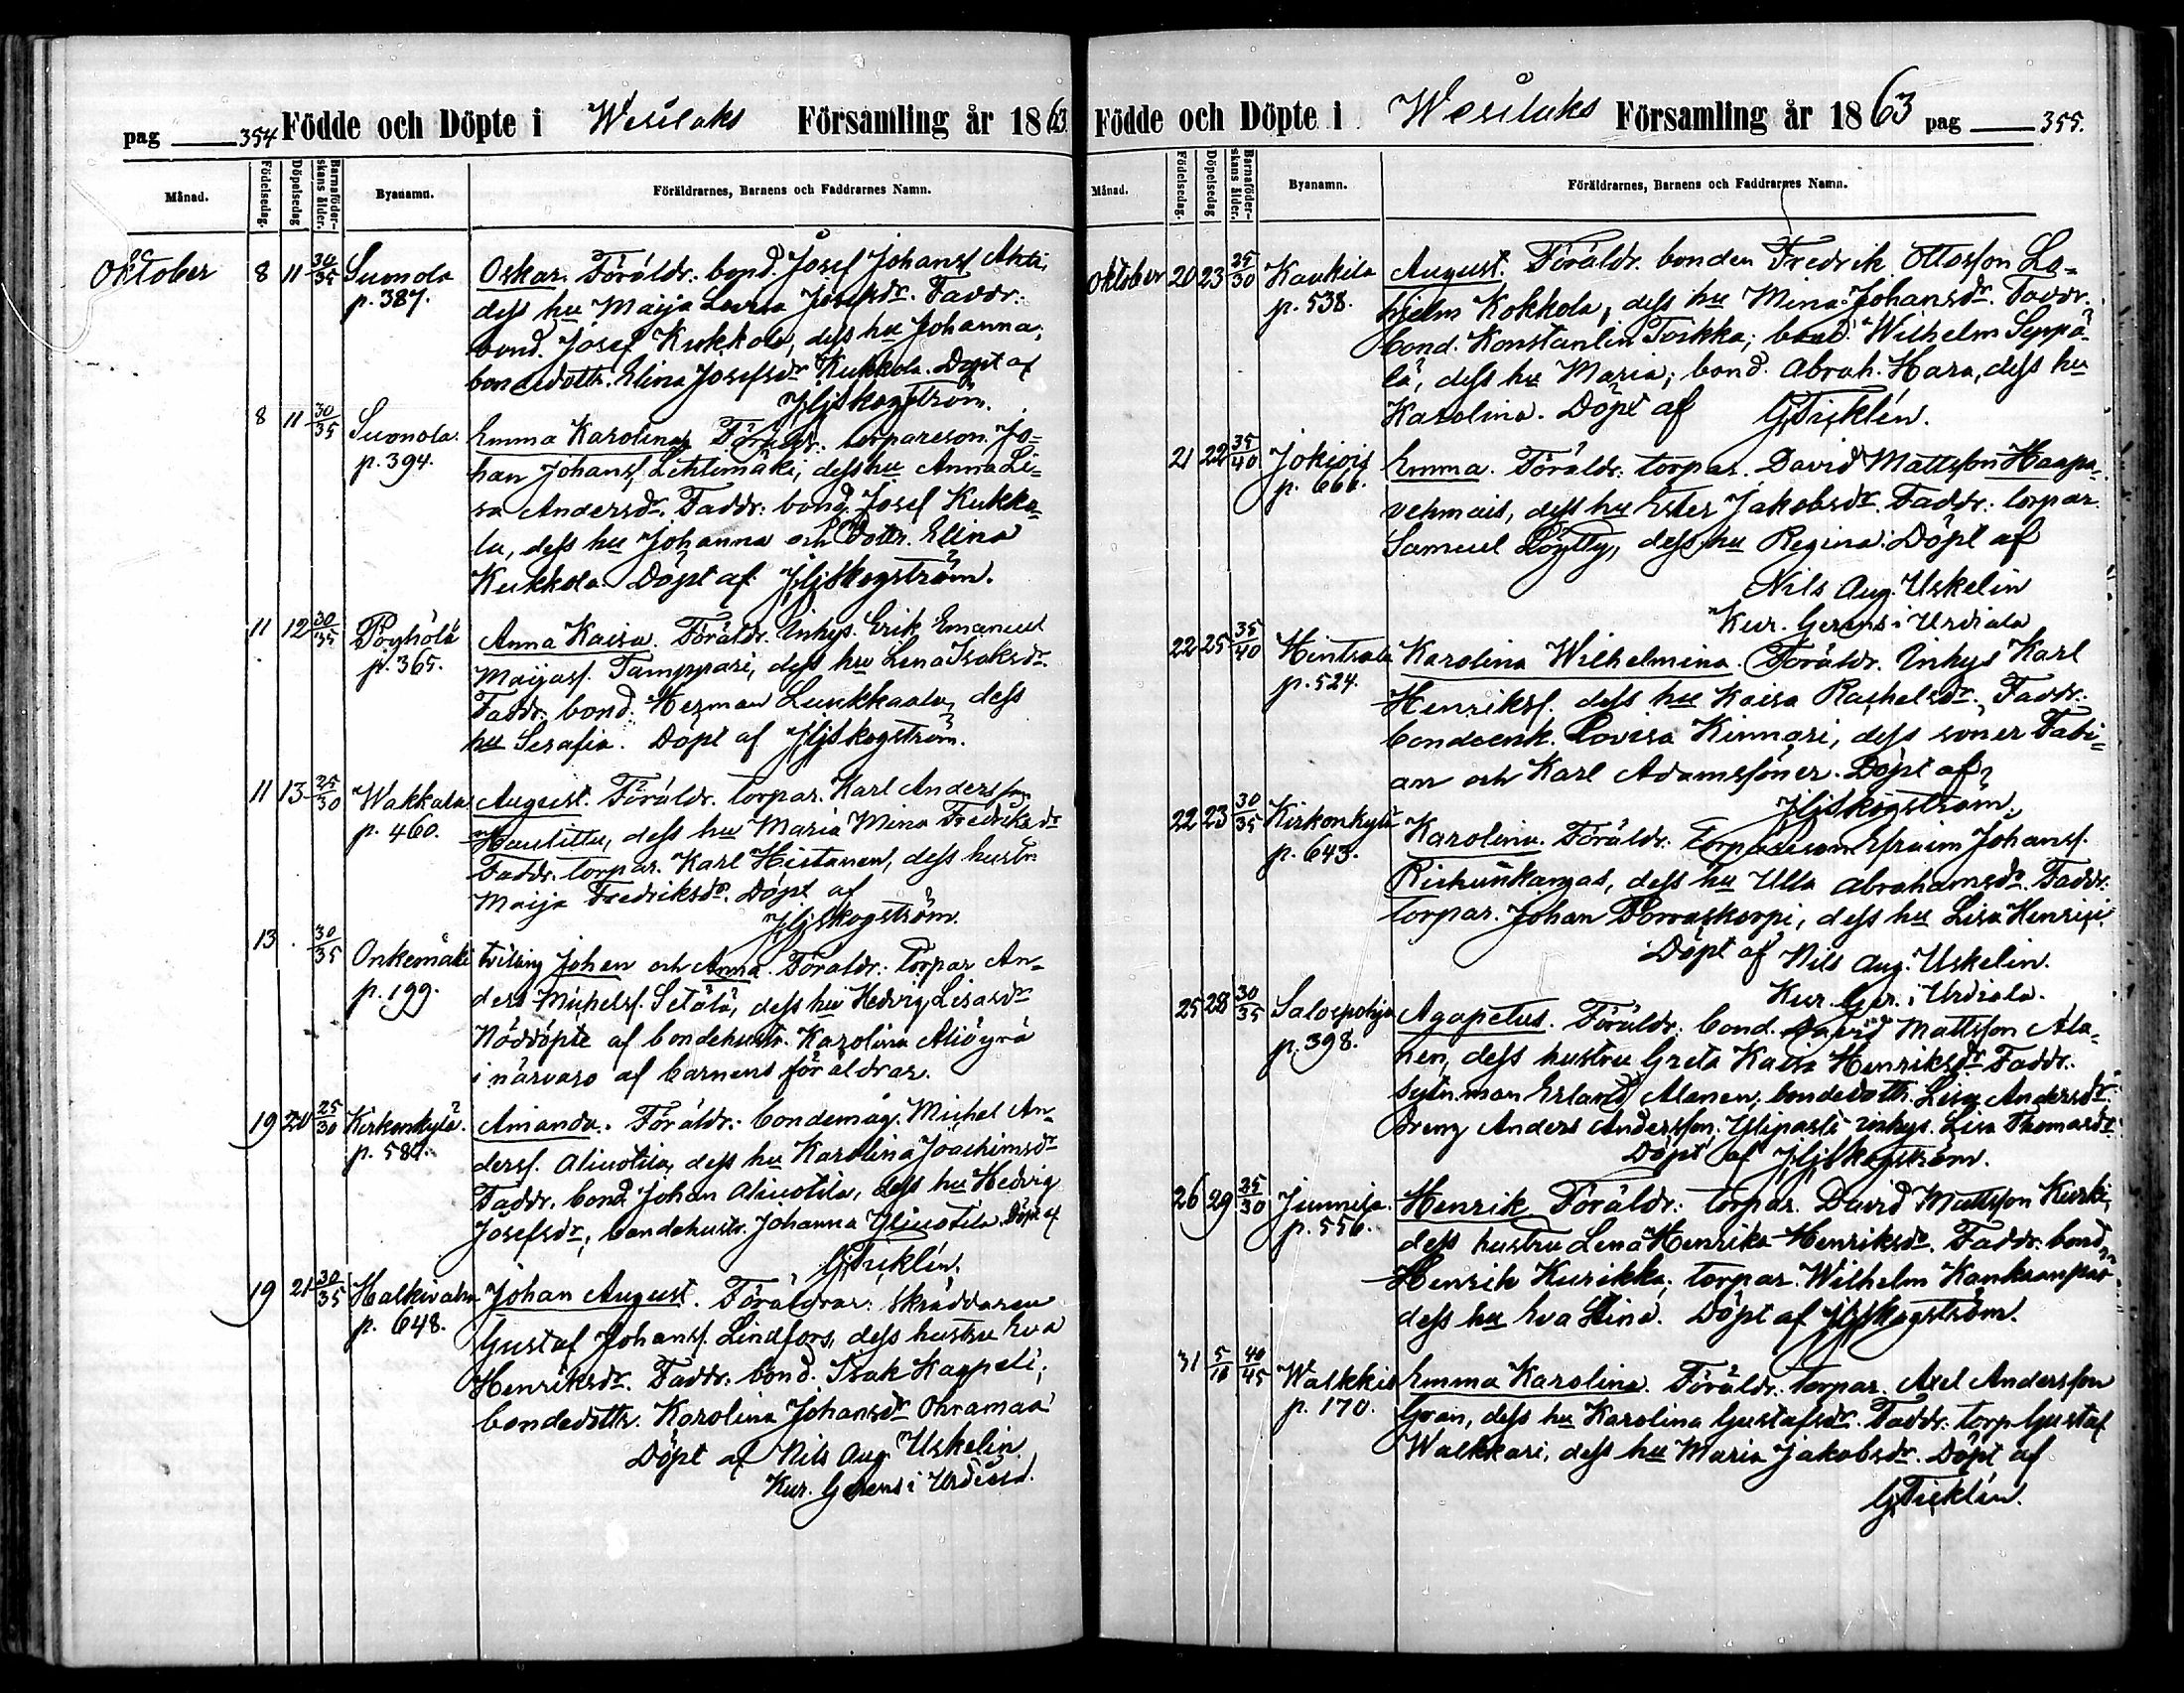 pag 354 Födde och Döpte i Wesilaks Församling år 1863
Månad. Födelsedag. Döpelsedag Barnaföderskans ålder. Byanamn. Föräldrarnes, Barnens och Faddrarnes Namn.
Oktober 8 11 30/35 Suonola Oskar. Föräldr. bond. Josef Johansf Ahti,
p. 387. dess hu Maija Lovisa Josefsdr. Faddr:
bond. Josef Kukkola, dess hu Johanna;
bondedottr. Elina Josefsdr Kukkola. Döpt af
Skogström.
8 11 30/35 Suonola. Emma Karolina. Föräldr. torpareson Jo=
p. 394. han Johansf Lehtimäki, dess hu Anna Li=
sa Andersdr. Faddr: bond. Josef Kukko=
la, dess hu Johanna och Dottr. Elina
Kukkola. Döpt af Skogström.
11 12 30/35 Pöyhölä Anna Kaisa. Föräldr. Inhys. Erik Emanuel
p. 365. Maijasf. Tamppari, dess hu Lena Isaksdr
Faddr. bond. Herman Luukkaala, dess
hu Serafia. Döpt af Skogström.
11 13 25/30 Wakkala August. Föräldr. torpar. Karl Andersson
p. 460. Haulittu, dess hu Maria Mina Fredriksdr
Faddr. torpar. Karl Hietanen, dess hustr.
Maija Fredriksdr. Döpt af
Skogström.
13 30/35 Onkemäki tvilling Johan och Anna. Föräldr: Torpar An=
p. 199. ders Michelsf. Setälä, dess hu Hedvig Lisasdr
Nöddöpte af bondehustr. Karolina Aliöyrä
i närvaro af barnens föräldrar.
19 20 25/30 Kirkonkylä. Amanda. Föräldr. bondemåg. Michel An=
p. 587. dersf. Aliuotila, dess hu Karolina Joachimsdr
Faddr. bond Johan Aliuotila, dess hu Hedvig
Josefsdr, bondehustr. Johanna Yliuotila. Döpt af
G. Ticklén.
19 21 30/35 Halkivaha Johan August. Föräldrar: Skräddaren
p. 648. Gustaf Johansf. Lindfors, dess hustru Eva
Henriksdr. Faddr: bond. Isak Kappeli;
bondedottr. Karolina Johansdr Ohramaa
Döpt af Nils Aug Uskelin
Kur. Gerens i Urdiala.
Födde och Döpte i Wesilaks Församling år 1863 pag 355.
Månad. Födelsedag. Döpelsedag Barnaföderskans ålder. Byanamn. Föräldrarnes, Barnens och Faddrarnes Namn.
Oktober 20 23 25/30 Kaukila August. Föräldr. bonden Fredrik Ottosson La=
p. 538. hjelm Kokkola, dess hu Mina Johansdr. Faddr.
bond. Konstantin Toikka; bond. Wilhelm Seppä=
lä, dess hu Maria; bond. Abrah. Hara, dess hu
Karolina. Döpt af G. Ticklén.
21 22 35/40 Jokioig Emma. Föräldr. torpar. David Mattsson Haapa=
p. 666. vehmais, dess hu Ester Jakobsdr. Faddr: torpar.
Samuel Löytty, dess hu Regina. Döpt af
Nils Aug. Uskelin
Kur. Gerens i Urdiala
22 25 35/40 Hintsala Karolina Wilhelmina. Föräldr. Inhys Karl
p. 524. Henriksf. dess hu Kaisa Rachelsdr. Faddr:
bondeenk. Lovisa Kinnari, dess söner Fabi=
an och Karl Adamssöner. Döpt af
Skogström.
22 23 30/35 Kirkonkylä Karolina. Föräldr: Torpareson Efraim Johansf.
p. 643. Riehunkangas, dess hu Ulla Abrahamsdr. Faddr.
torpar. Johan Porraskorpi, dess hu Lisa
Döpt af Nils Aug. Uskelin.
Kur. Ger. i Urdiala.
25 28 30/35 Salospohja Agapetus. Föräldr. bond. David Mattsson Ala=
p. 398. nen, dess hustru Greta Kaisa Henriksdr. Faddr.
sytn.man Erland Alanen, bondedottr. Lisa Andersdr.
Dreng Anders Andersson; Ylipasti inhys. Lisa Thomasdr
Döpt af Skogström.
26 29 25/30 Junnila. Henrik. Föräldr: torpar. David Mattsson Kurki,
p. 556. dess hustru Lena Henrika Henriksdr. Faddr: bond
Henrik Kurikka; torpar. Wilhelm
dess hu Eva Stina. Döpt af Skogström.
31 5/11 40/45 Walkkis Emma Karolina. Föräldr. torpar. Axel Andersson
p. 170. Gran, dess hu Karolina Gustafsdr. Faddr: torp Gustaf
Walkkari, dess hu Maria Jakobsdr. Döpt af
G. Ticklén.